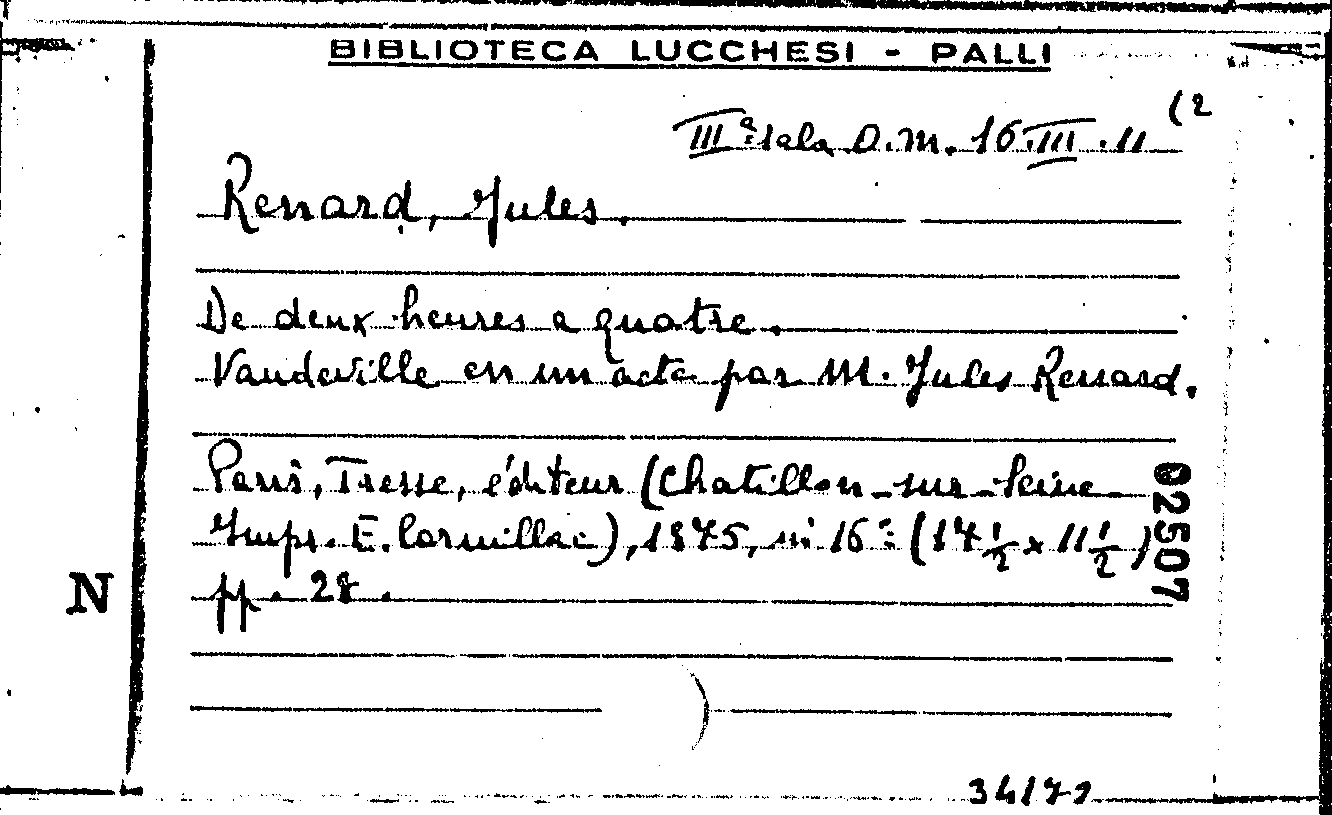 BIBLIOTECA LUCCHESI - PALLI
IIIª sala O.M. 16.III.11 (2
Renard, Jules.
De deux heures a quatre.
Vaudeville en un acte par M. Jules Renard.
Paris, Tresse, éditeur (Chatillon-sur-Seine
Impr. E. Cornillac), 1875, in 16º (17 1/2 x 11 1/2)
pp. 28.
02507
N